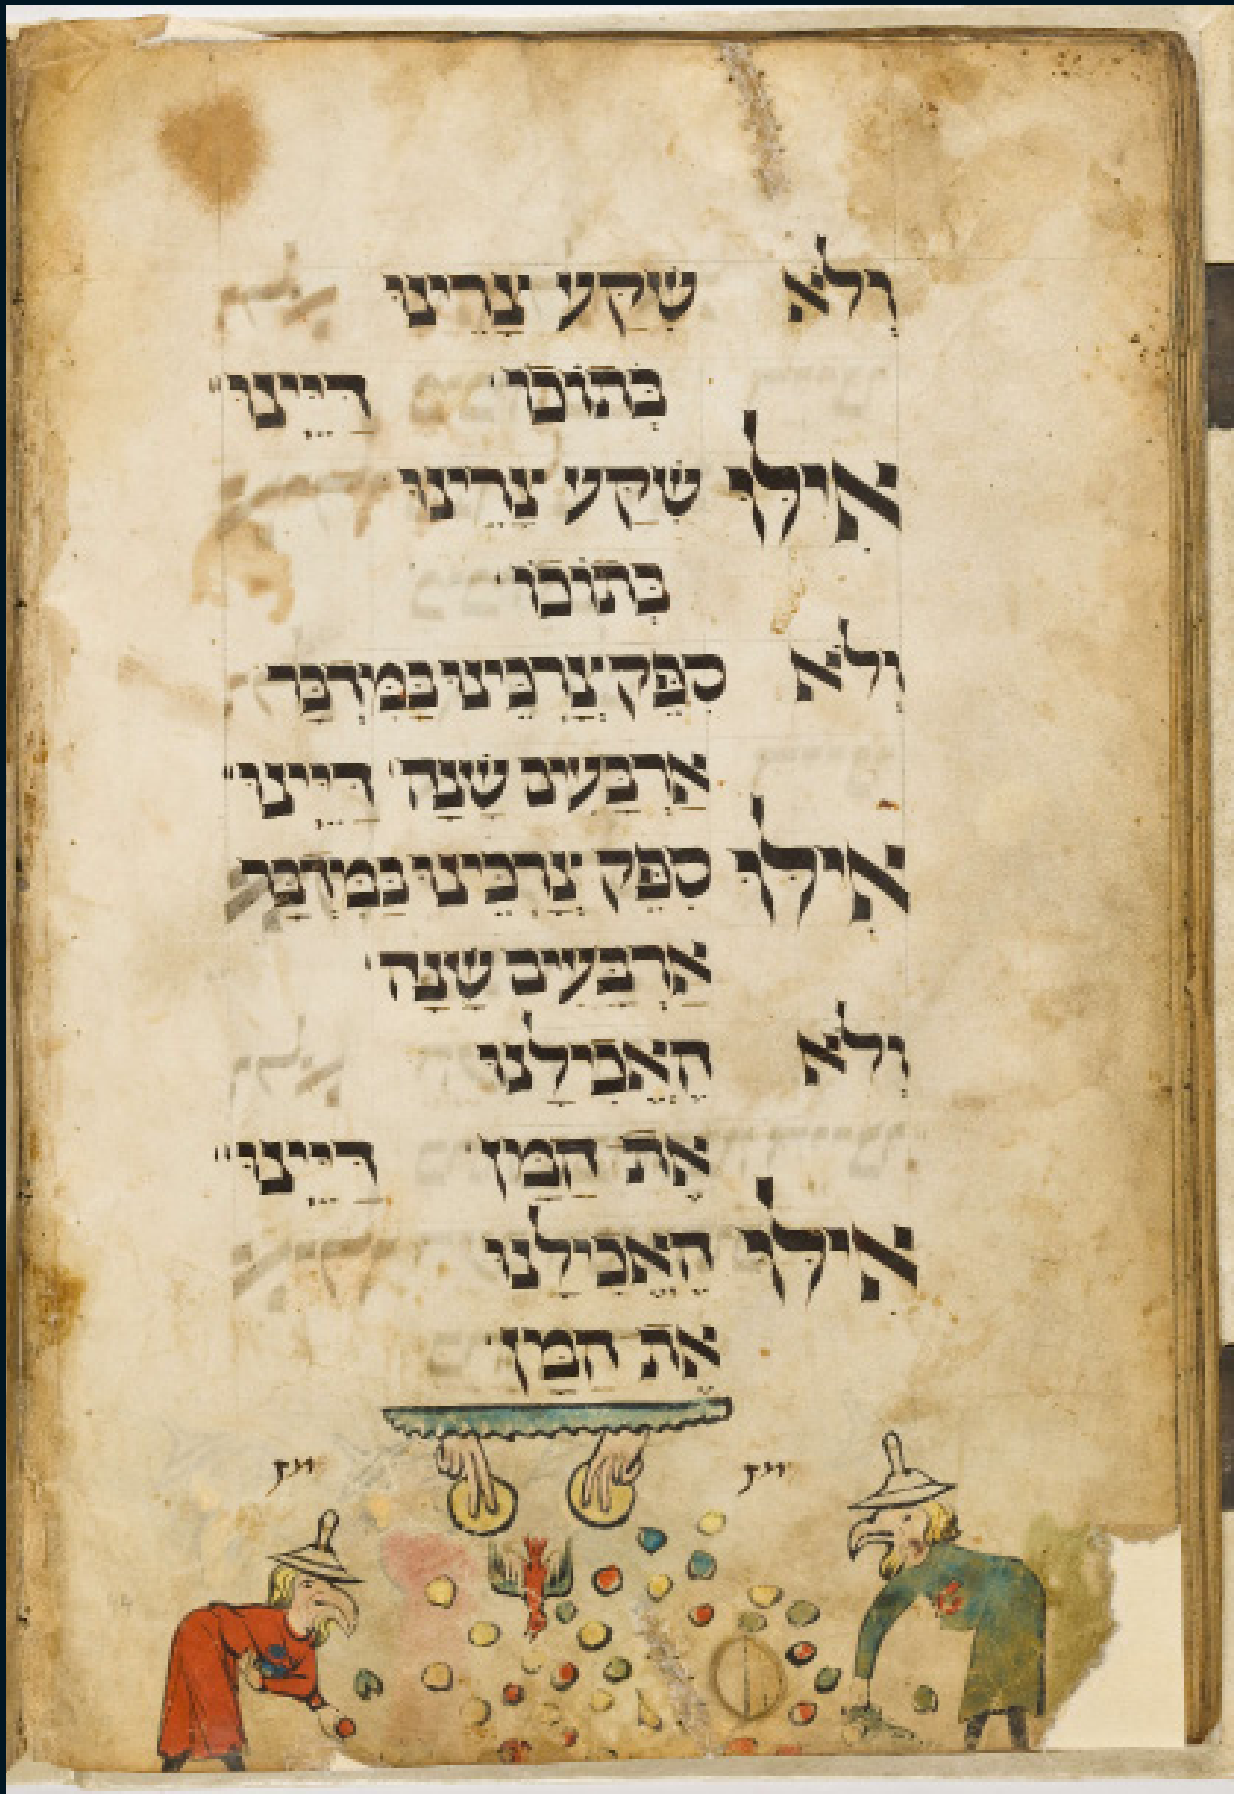 וְלֹא שִׁקַּע צָרֵינוּ
בְּתוֹכוֹ דַּיֵּינוּ
אִילּוּ שִׁקַּע צָרֵינוּ
בְּתוֹכוֹ
וְלֹא סִפֵּק צָרְכֵּינוּ בַּמִּדְבָּר
אַרְבָּעִים שָׁנָה דַּיֵּינוּ
אִילּוּ סִפֵּק צָרְכֵּינוּ בַּמִּדְבָּר
אַרְבָּעִים שָׁנָה
וְלֹא הֶאֱכִילָנוּ
אֶת הַמָּן דַּיֵּינוּ
אִילּוּ הֶאֱכִילָנוּ
אֶת הַמָּן